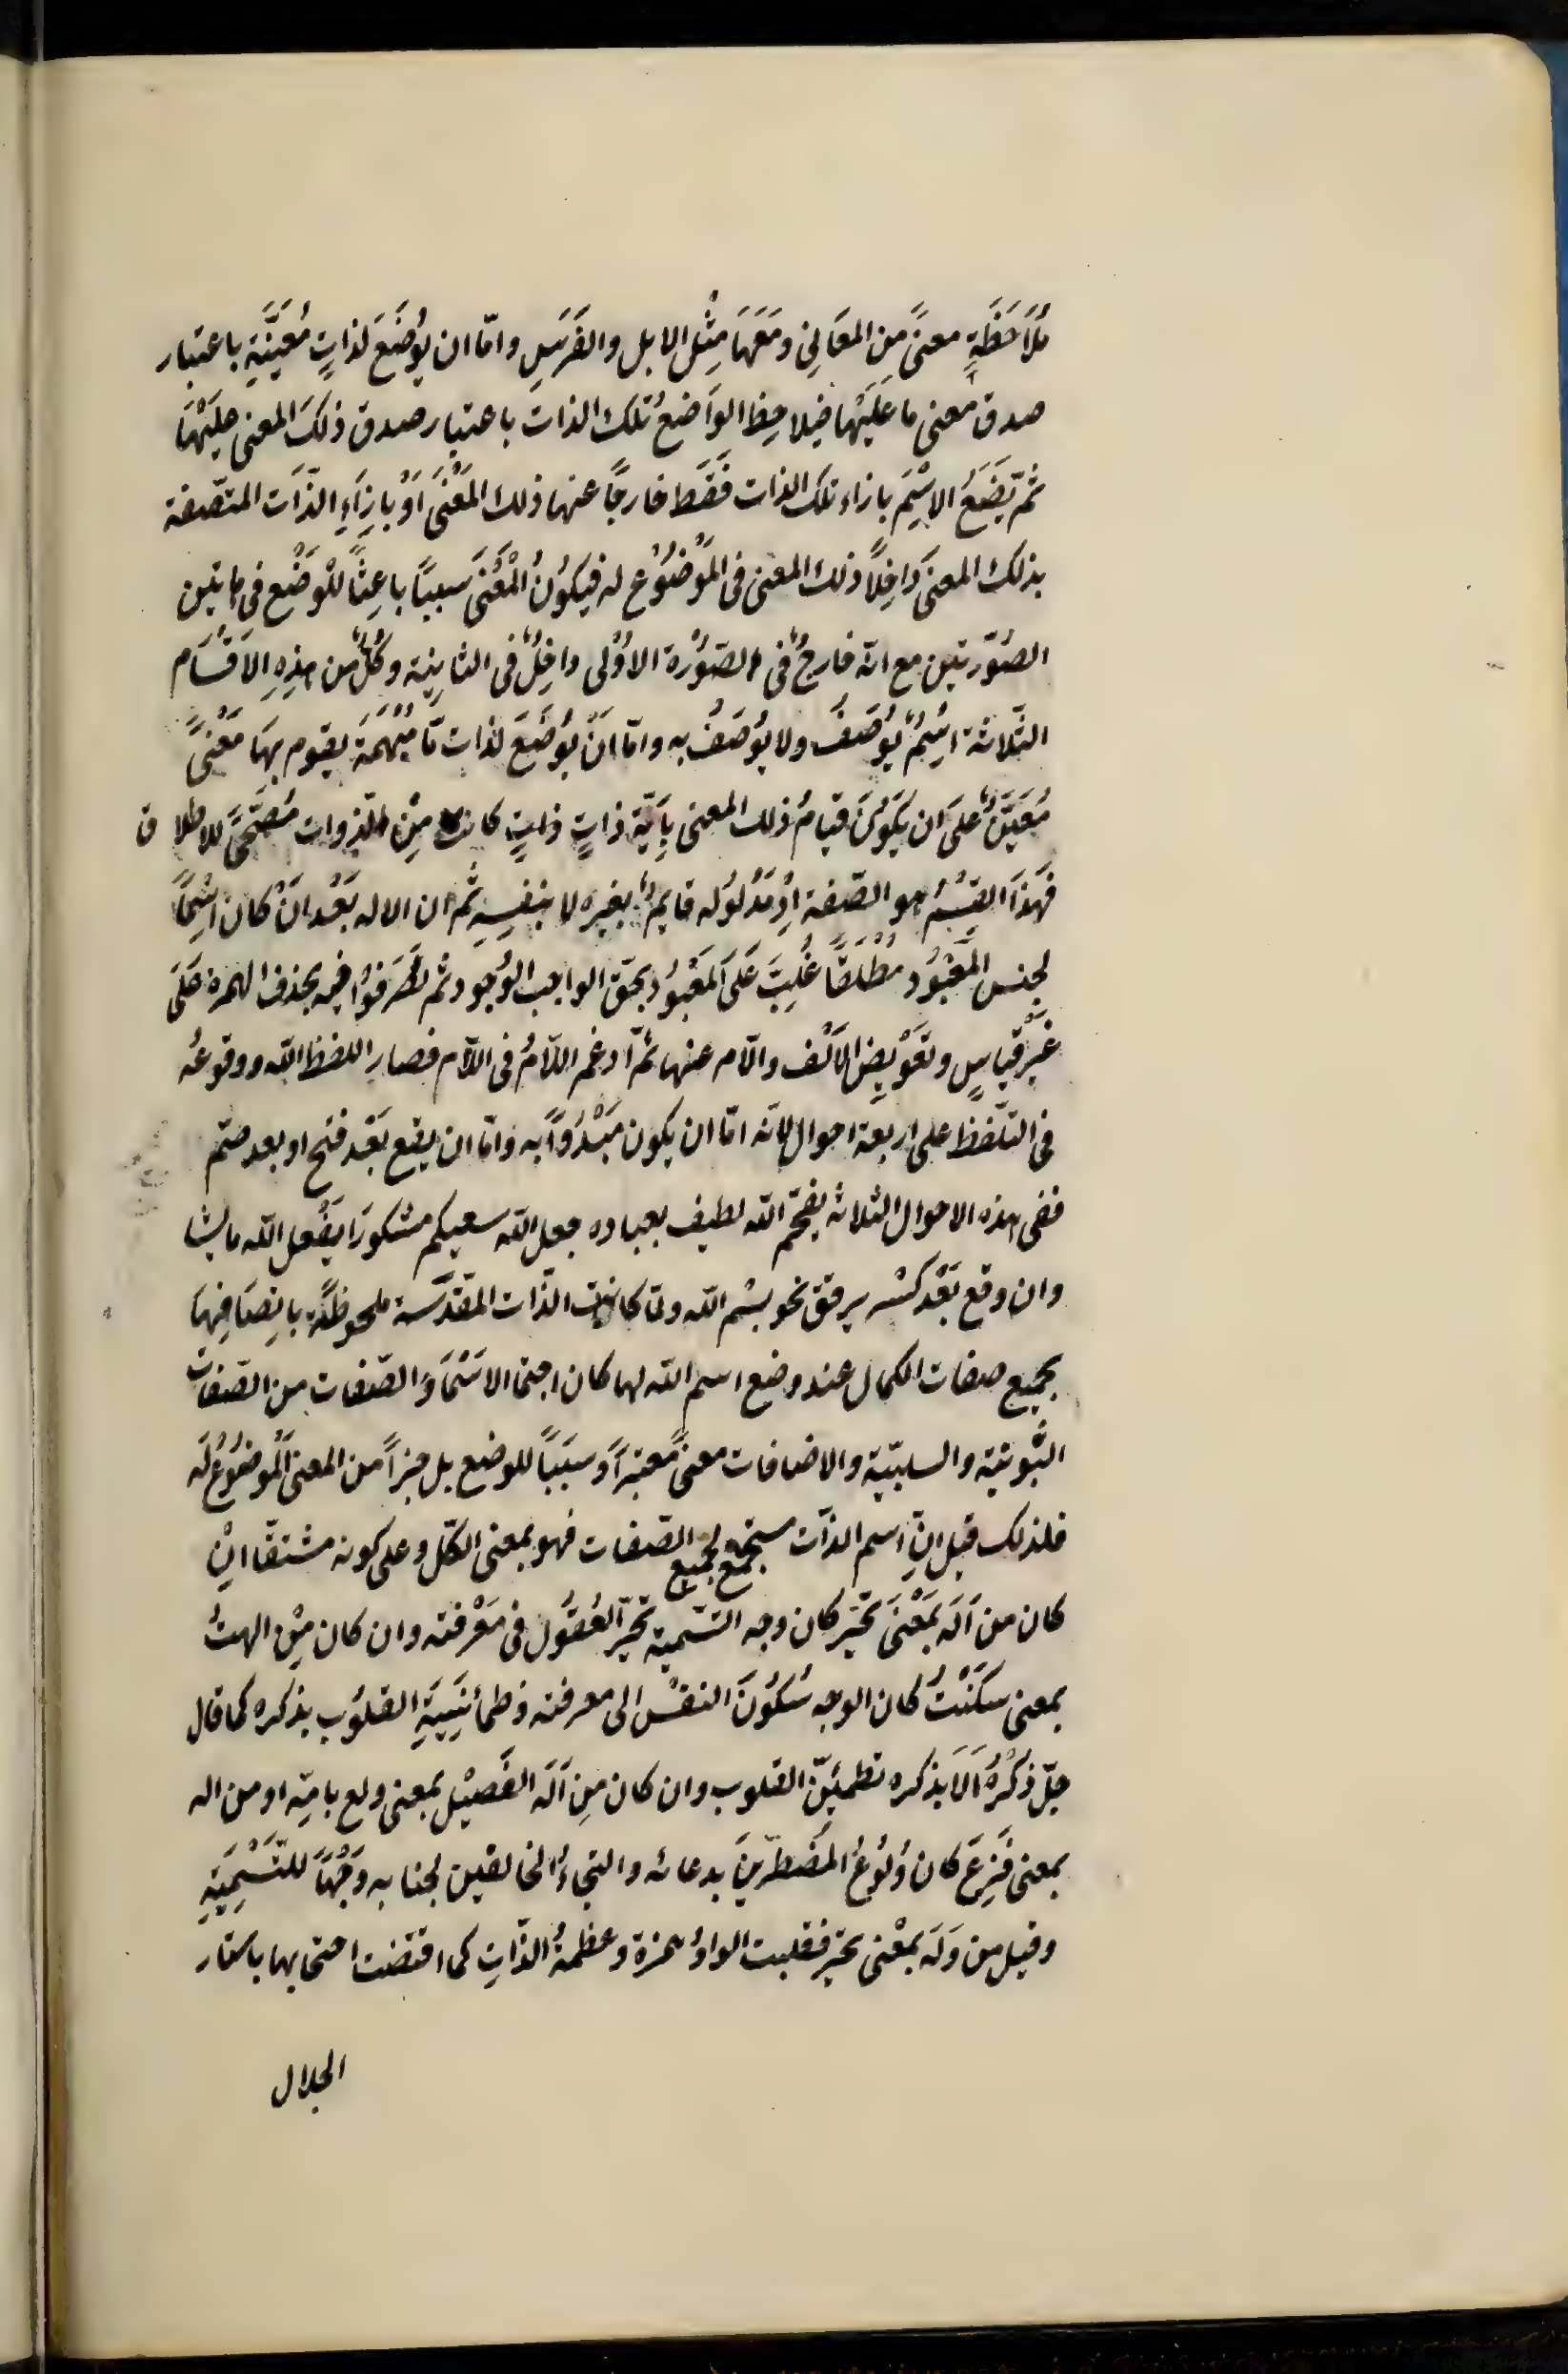 مُلَاحَظَةِ معنىً مِن المعَانِي ومَعَهَا مِثْل الابل والفَرَسِ وامّا ان يُوضَعَ لذاتٍ مُعَيَّنَةٍ باعتبار
صدق معنى ما عَلَيْهَا فيلاحِظ الوَاضعُ تلك الذات باعتبار صدق ذلكَ المعنى عليْهَا
ثمّ يَضَعُ الاسْمَ بازاء تلك الذات فَقَط خارجًا عنها ذلك المعْنَى اَوْ بازِاءِ الذّات المتّصفة
بذلك المعنى دَاخِلاً ذلك المعنى فى المَوْضُوْعِ له فيكوُنُ الْمعْنَى سَببًا باعِثًا للْوَضْعِ فى هاتين
الصُوْرتين مع انّه خارجٌ فى الصّوُرة الاوُلى داخِلٌ فى الثانِية وكُلٌ من هذِهِ الاقسَام
الثلاثة اِسْمٌ يُوصَفُ ولا يُوصَفُ به وامّا انْ يُوضَعَ لذات مّا مُبْهَمَة يقوم بهَا مَعْنىً
مُعَيَّنٌ عَلَى ان يَكُونَ قيامُ ذلك المعنى باَيّة ذاتٍ ذاتٍ كانت مِنْ الذوات مُصَحِّحًا للاطلاق
فَهذَا القِسْمُ هو الصّفة اِذْ مَدْلُوله قايمٌ بغيره لا بنفسِهِ ثم ان الاله بَعْد انْ كان اسْمًا
لجنس المَعْبُودِ مُطْلقًا غُلِبَ عَلَى المَعْبُوُدِ بحقّ الواجب الوُجود ثم تصَرفوُا فيه بحذف الهمزة عَلَى
غَيْرِ قياسٍ وتَعْوِيض الاَلْف واللّام عنها ثمّ ادغم اللّامُ فى اللّام فصارِ اللفظ اللّه ووقوعُه
فى التلفّظ على اربعة احوال لانّه امّا ان يكون مَبْدُوًّا به وامّا ان يقع بَعْد فتح او بعد ضم
ففى هذه الاحوال الثلاثه يفخّم اللّه لطيف بعباده جعل اللّه سعيكم مشكورًا يَفْعل اللّه ما يشا
وان وقع بَعْد كسْر يرقق نحو بسْم اللّه ولمّا كانت الذّات المقدَّسة ملحوظةً بِاتِصَافِهَا
بجميع صفات الكمال عند وضع اسم اللّه لها كان اجتما الاسْمَاءَ الصّفات من الصّفات
الثُبوتيّة والسلبيّة والاضافات معنىً معتبرًا وسَببًا للوضع بل جزأً من المعنى الْمَوضُوُعُ لَه
فلذلك قيل انّ اسم الذات مستجمعٌ لجميع الصّفات فهو بمعنى الكلّ وعلى كونه مشتقّا ان
كان من اَلَه بمعْنىَ تحيّر كان وجه التّسمية تحيّر العُقوُل فى مَعْرفته وان كان مِن الهتُ
بمعنى سَكَنْتُ كان الوجه سُكُونَ النفسْ الى معرفته وطمأنِينَةِ القلوُب بذكره كما قال
جلّ ذكْرُه اَلَا بذكره تطمئِنّ القلوب وان كان مِن اَلَه الفَصِيْل بمعنى ولع بامّه او من اله
بمعنى فَزِعَ كان وُلُوعُ المضطَرّينَ بدعائه والتجاءُ الخايفين لجنابه وَجْهًا للتَّسْمِيَةِ
وقيل من وَلَه بمعْنى تحيّر فقلبت الواوُ همزة وعظمةُ الذّاتِ كما اقتضت احتجابها باستار
الجلال